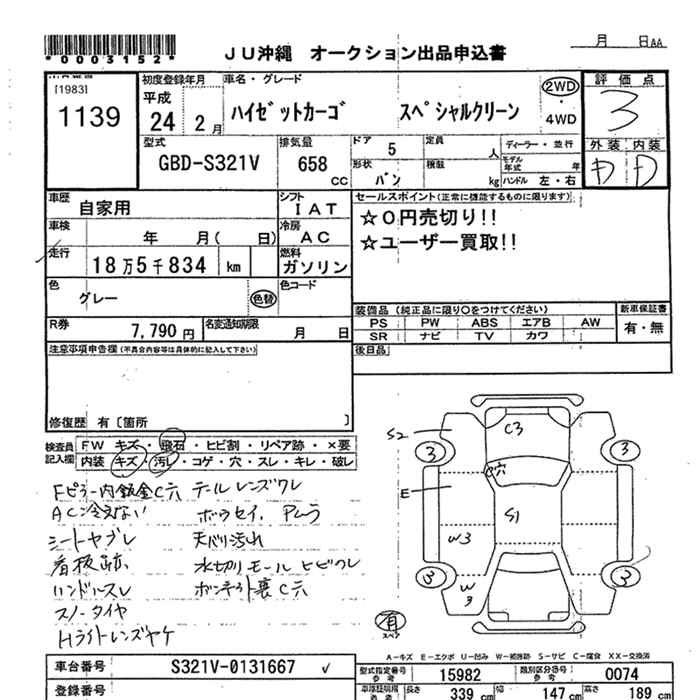 *0003152*
JU沖縄 オークション出品申込書
月 日AA
[1983]
1139
初度登録年月
平成
24 2月
車名・グレード
ハイゼットカーゴ スペシャルクリーン
2WD
・
4WD
評価点
3
外装 内装
D D
型式
GBD-S321V
排気量
658 CC
ドア 5
定員 人
形状 バン
積載 kg
ディーラー・並行
モデル年式 年
ハンドル 左・右
車歴
自家用
シフト
IAT
車検
年 月( 日)
冷房
AC
走行
18万5千834 km
燃料
ガソリン
色
グレー
色替
色コード
R券
7,790円
名変通知期限
月 日
セールスポイント(正常に機能するものに限ります)
☆0円売切り!!
☆ユーザー買取!!
装備品 (純正品に限り○をつけてください)
新車保証書
PS PW ABS エアB AW
有・無
SR ナビ TV カワ
後日品
注意事項申告欄(不具合内容等は具体的に記入して下さい)
修復歴 有〔箇所 〕
検査員記入欄
FW キズ・飛石・ヒビ割・リペア跡・×要
内装・キズ・汚レ・コゲ・穴・スレ・キレ・破レ
Fピラー内鈑金C穴 テールレンズワレ
AC冷えない
シートヤブレ 天バリ汚れ
看板跡 水切りモールヒビワレ
ハンドルスレ
スノータイヤ
Hライトレンズヤケ
S2
C3
3 3
C穴
E
S1
W3
3 3
W3
有
スペア
A−キズ E−エクボ U−凹み W−補修跡 S−サビ C−腐食 XX−交換済
車台番号
S321V-0131667
登録番号
型式指定番号 参考
15982
類別区分番号 参考
0074
長さ 339 cm
幅 147 cm
高さ 189 cm